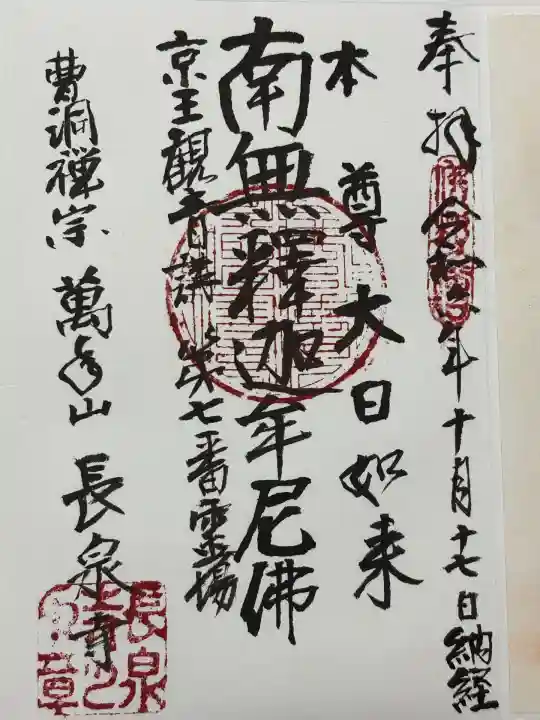 奉拝 令和六年十月十七日納経
本尊大日如来
南無釋迦牟尼佛
京王觀音講 第七番霊場
曹洞禅宗 萬年山 長泉寺
長泉寺之印章